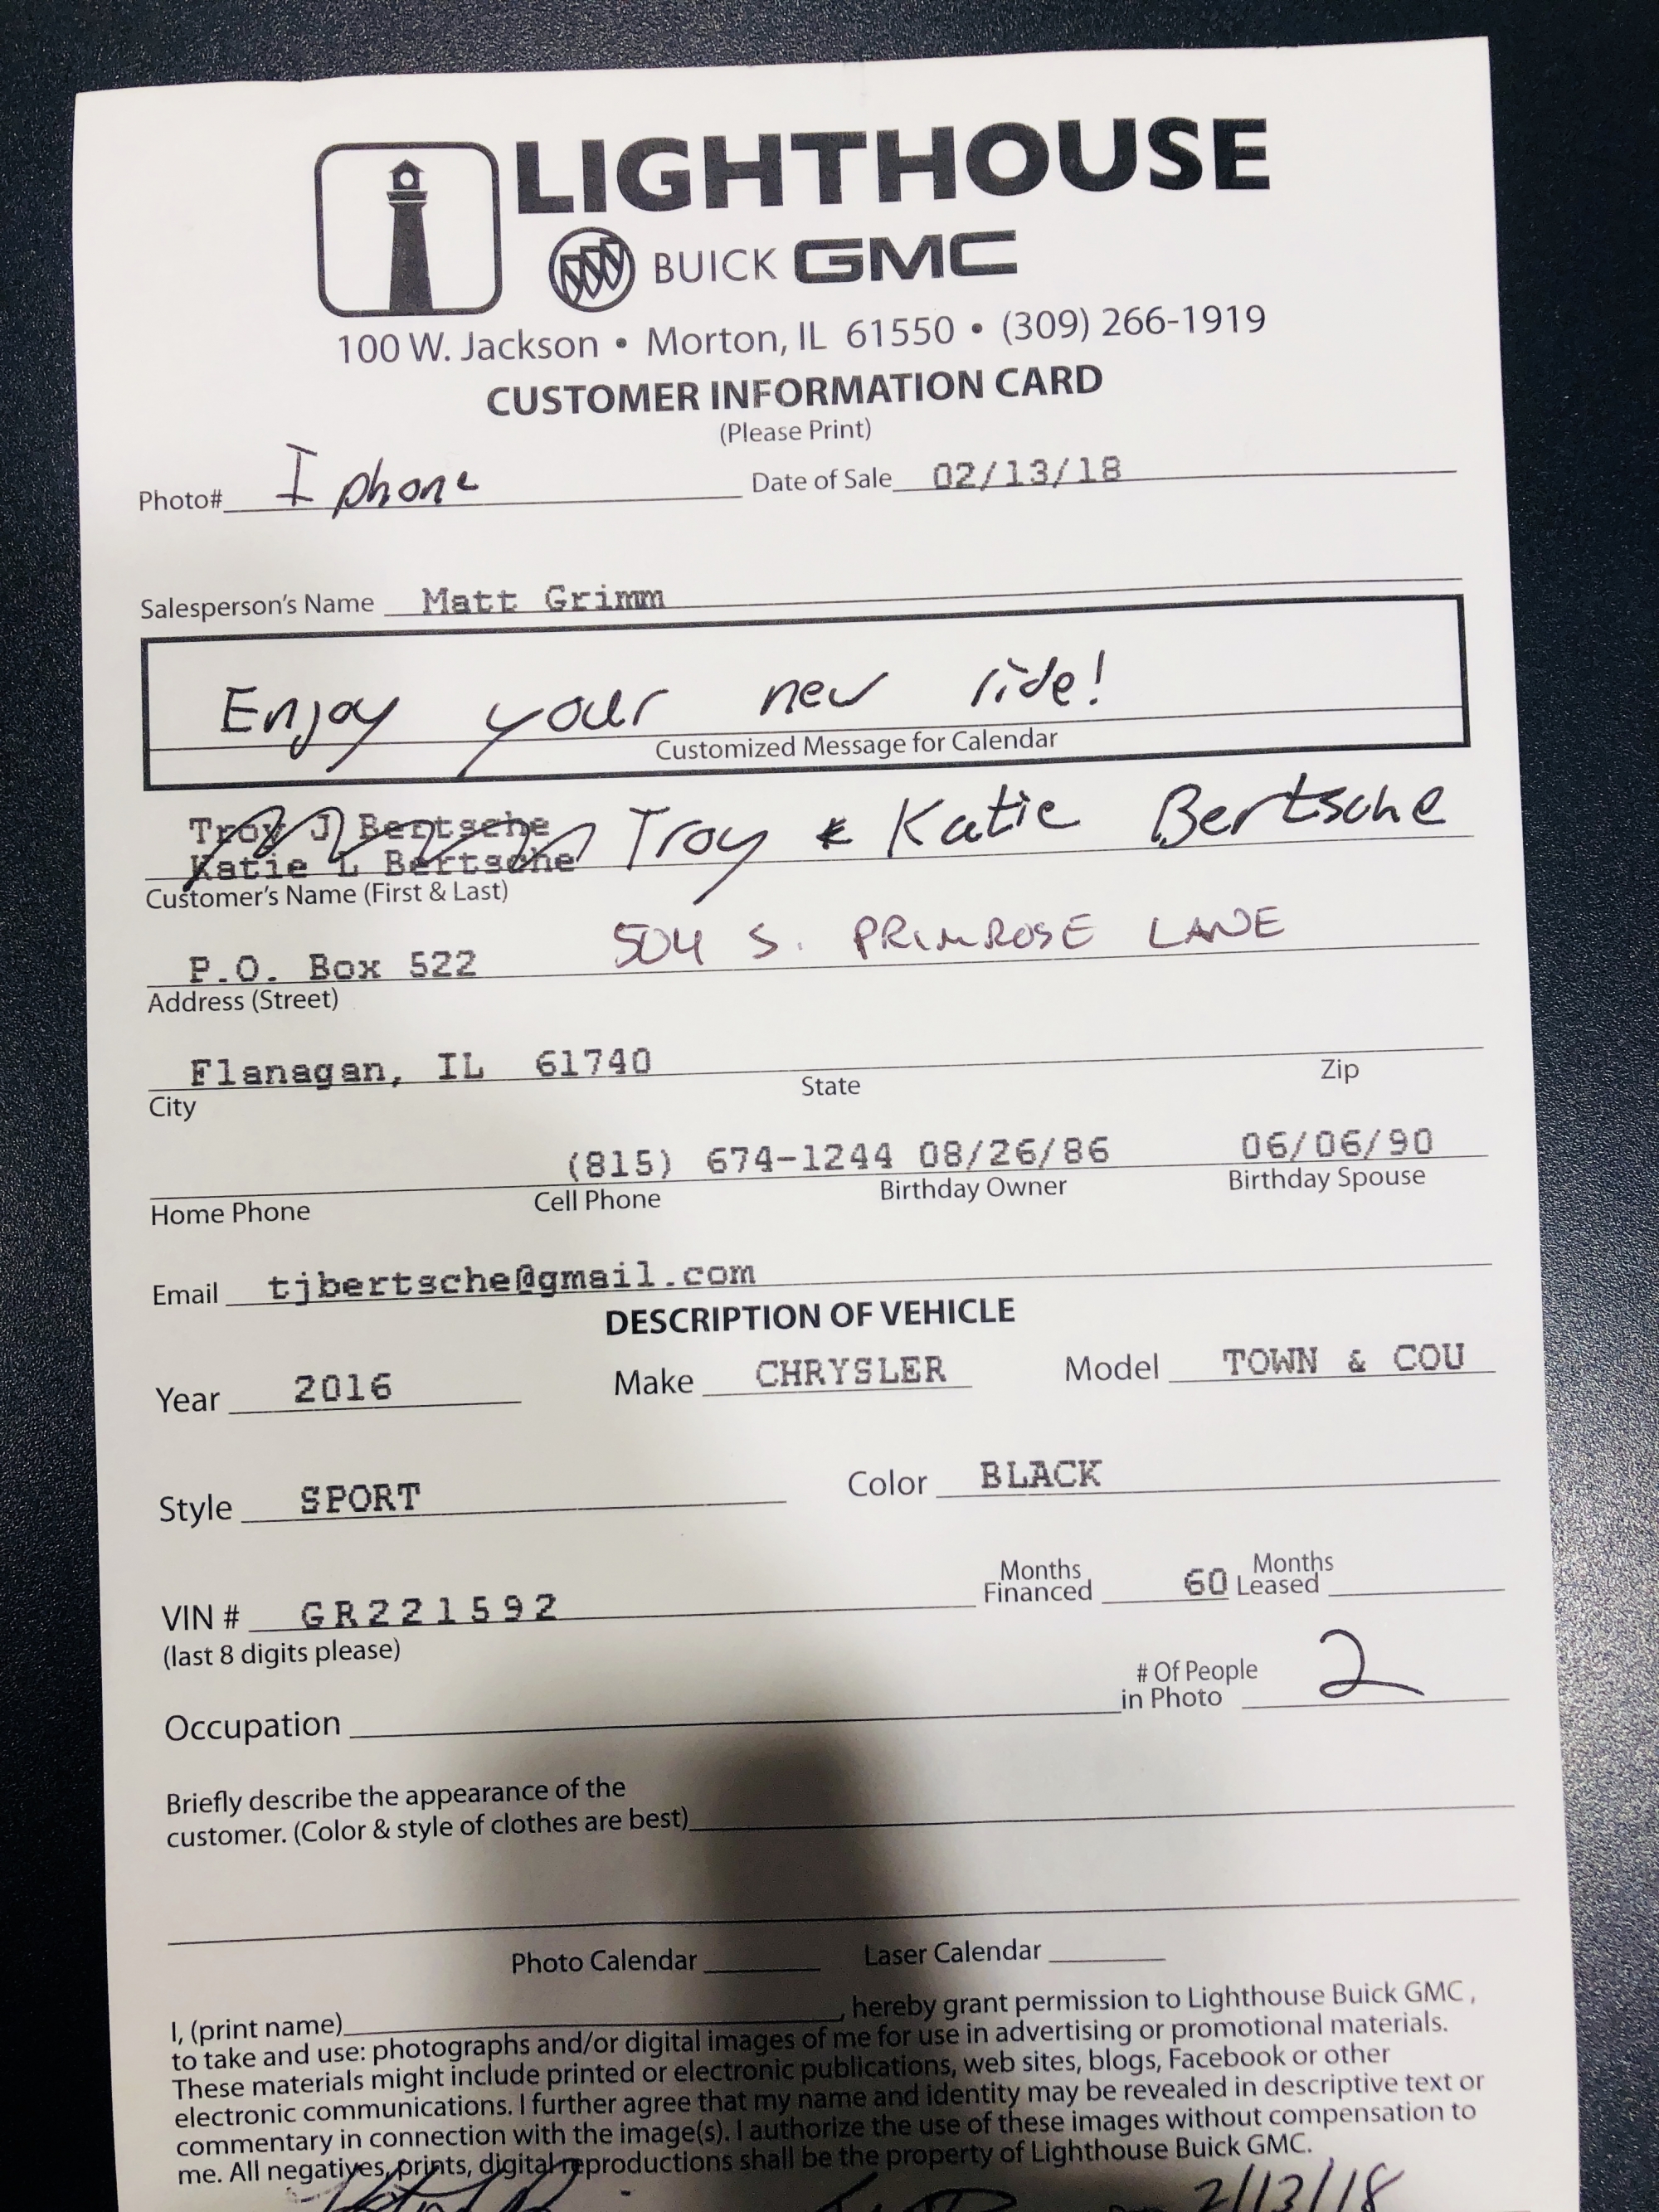 LIGHTHOUSE
BUICK GMC
100 W. Jackson • Morton, IL 61550 • (309) 266-1919
CUSTOMER INFORMATION CARD
(Please Print)
Photo# I phone Date of Sale 02/13/18
Salesperson's Name Matt Grimm
Enjoy your new ride!
Customized Message for Calendar
Troy J Bertsche Troy & Katie Bertsche
Katie L Bertsche
Customer's Name (First & Last)
P.O. Box 522 504 S. PRIMROSE LANE
Address (Street)
Flanagan, IL 61740
City State Zip
(815) 674-1244 08/26/86 06/06/90
Home Phone Cell Phone Birthday Owner Birthday Spouse
Email tjbertsche@gmail.com
DESCRIPTION OF VEHICLE
Year 2016 Make CHRYSLER Model TOWN & COU
Style SPORT Color BLACK
VIN # GR221592 Months Financed 60 Months Leased
(last 8 digits please)
Occupation # Of People in Photo 2
Briefly describe the appearance of the
customer. (Color & style of clothes are best)
Photo Calendar Laser Calendar
I, (print name) , hereby grant permission to Lighthouse Buick GMC ,
to take and use: photographs and/or digital images of me for use in advertising or promotional materials.
These materials might include printed or electronic publications, web sites, blogs, Facebook or other
electronic communications. I further agree that my name and identity may be revealed in descriptive text or
commentary in connection with the image(s). I authorize the use of these images without compensation to
me. All negatives, prints, digital reproductions shall be the property of Lighthouse Buick GMC.
2/13/18